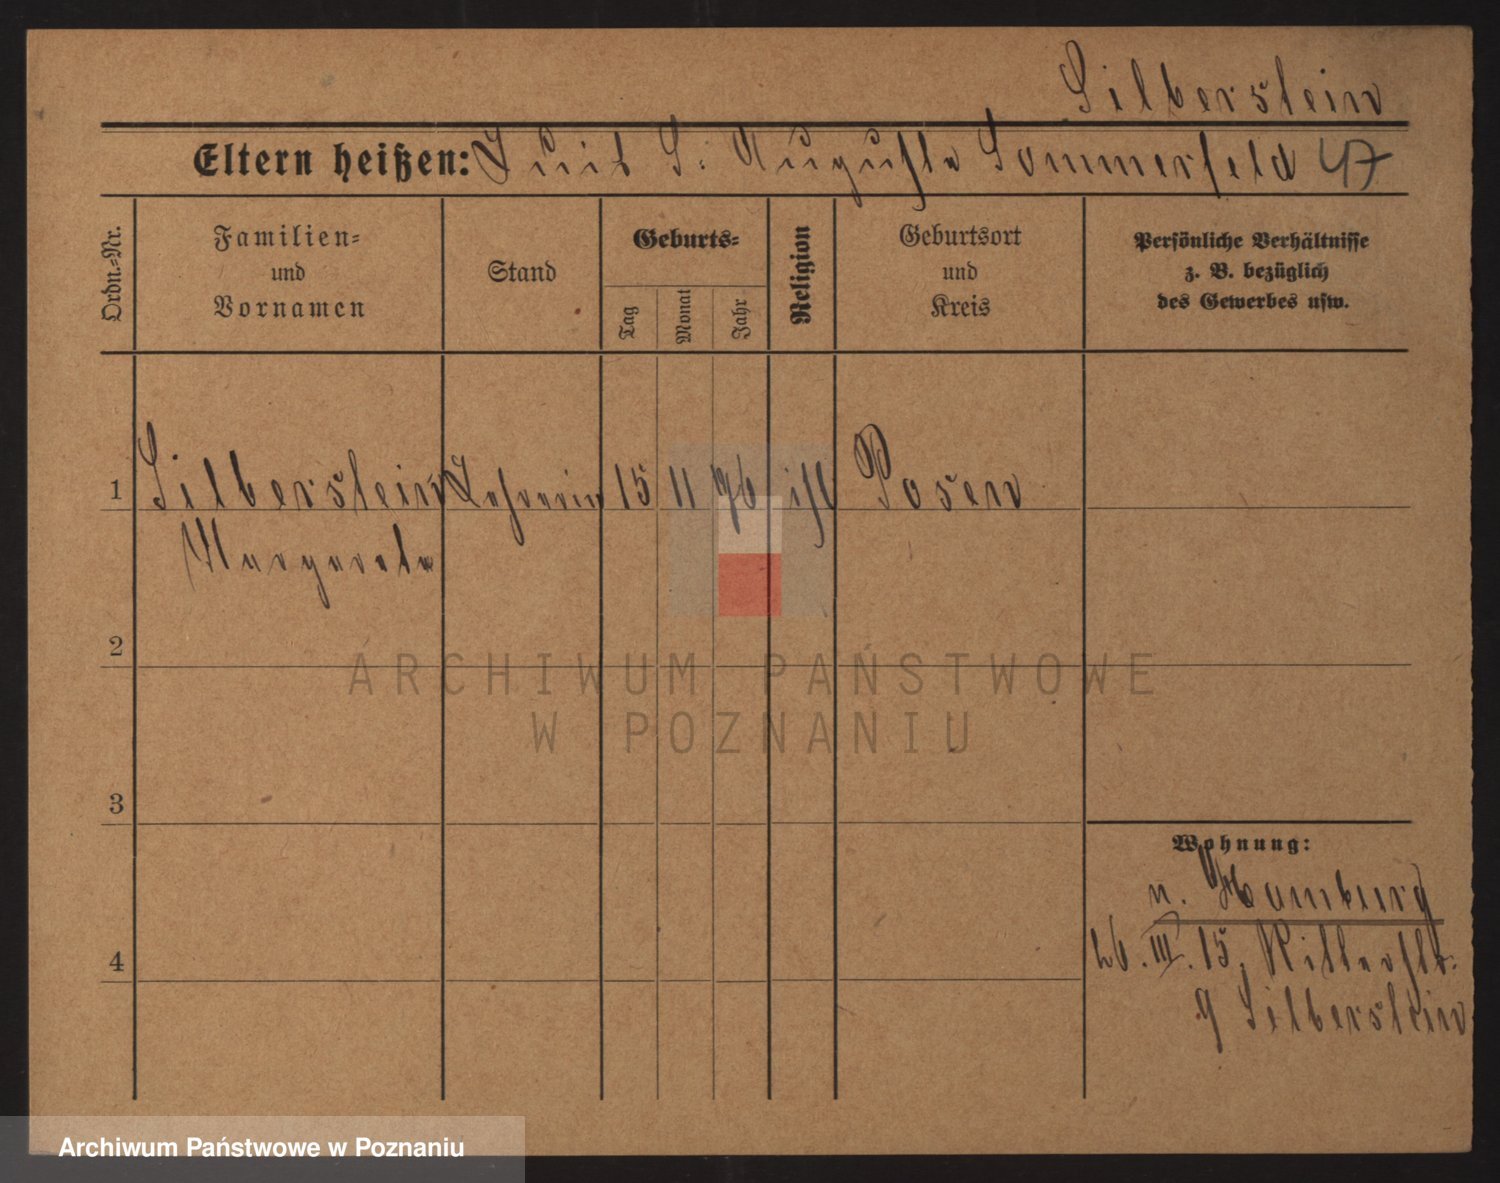 Silberstein
Eltern heißen: Louis S. Auguste Sommerfeld 47
Ordn.=Nr.
Familien=
und
Vornamen
Stand
Geburts=
Tag
Monat
Jahr
Religion
Geburtsort
und
Kreis
Persönliche Verhältnisse
z. B. bezüglich
des Gewerbes usw.
1 Silberstein Lehrerin 15 11 96 isr Posen
Margarete
2
ARCHIWUM PAŃSTWOWE
W POZNANIU
3
Wohnung:
n. Hamburg
4
26. III. 15, Ritterstr.
9 Silberstein
Archiwum Państwowe w Poznaniu